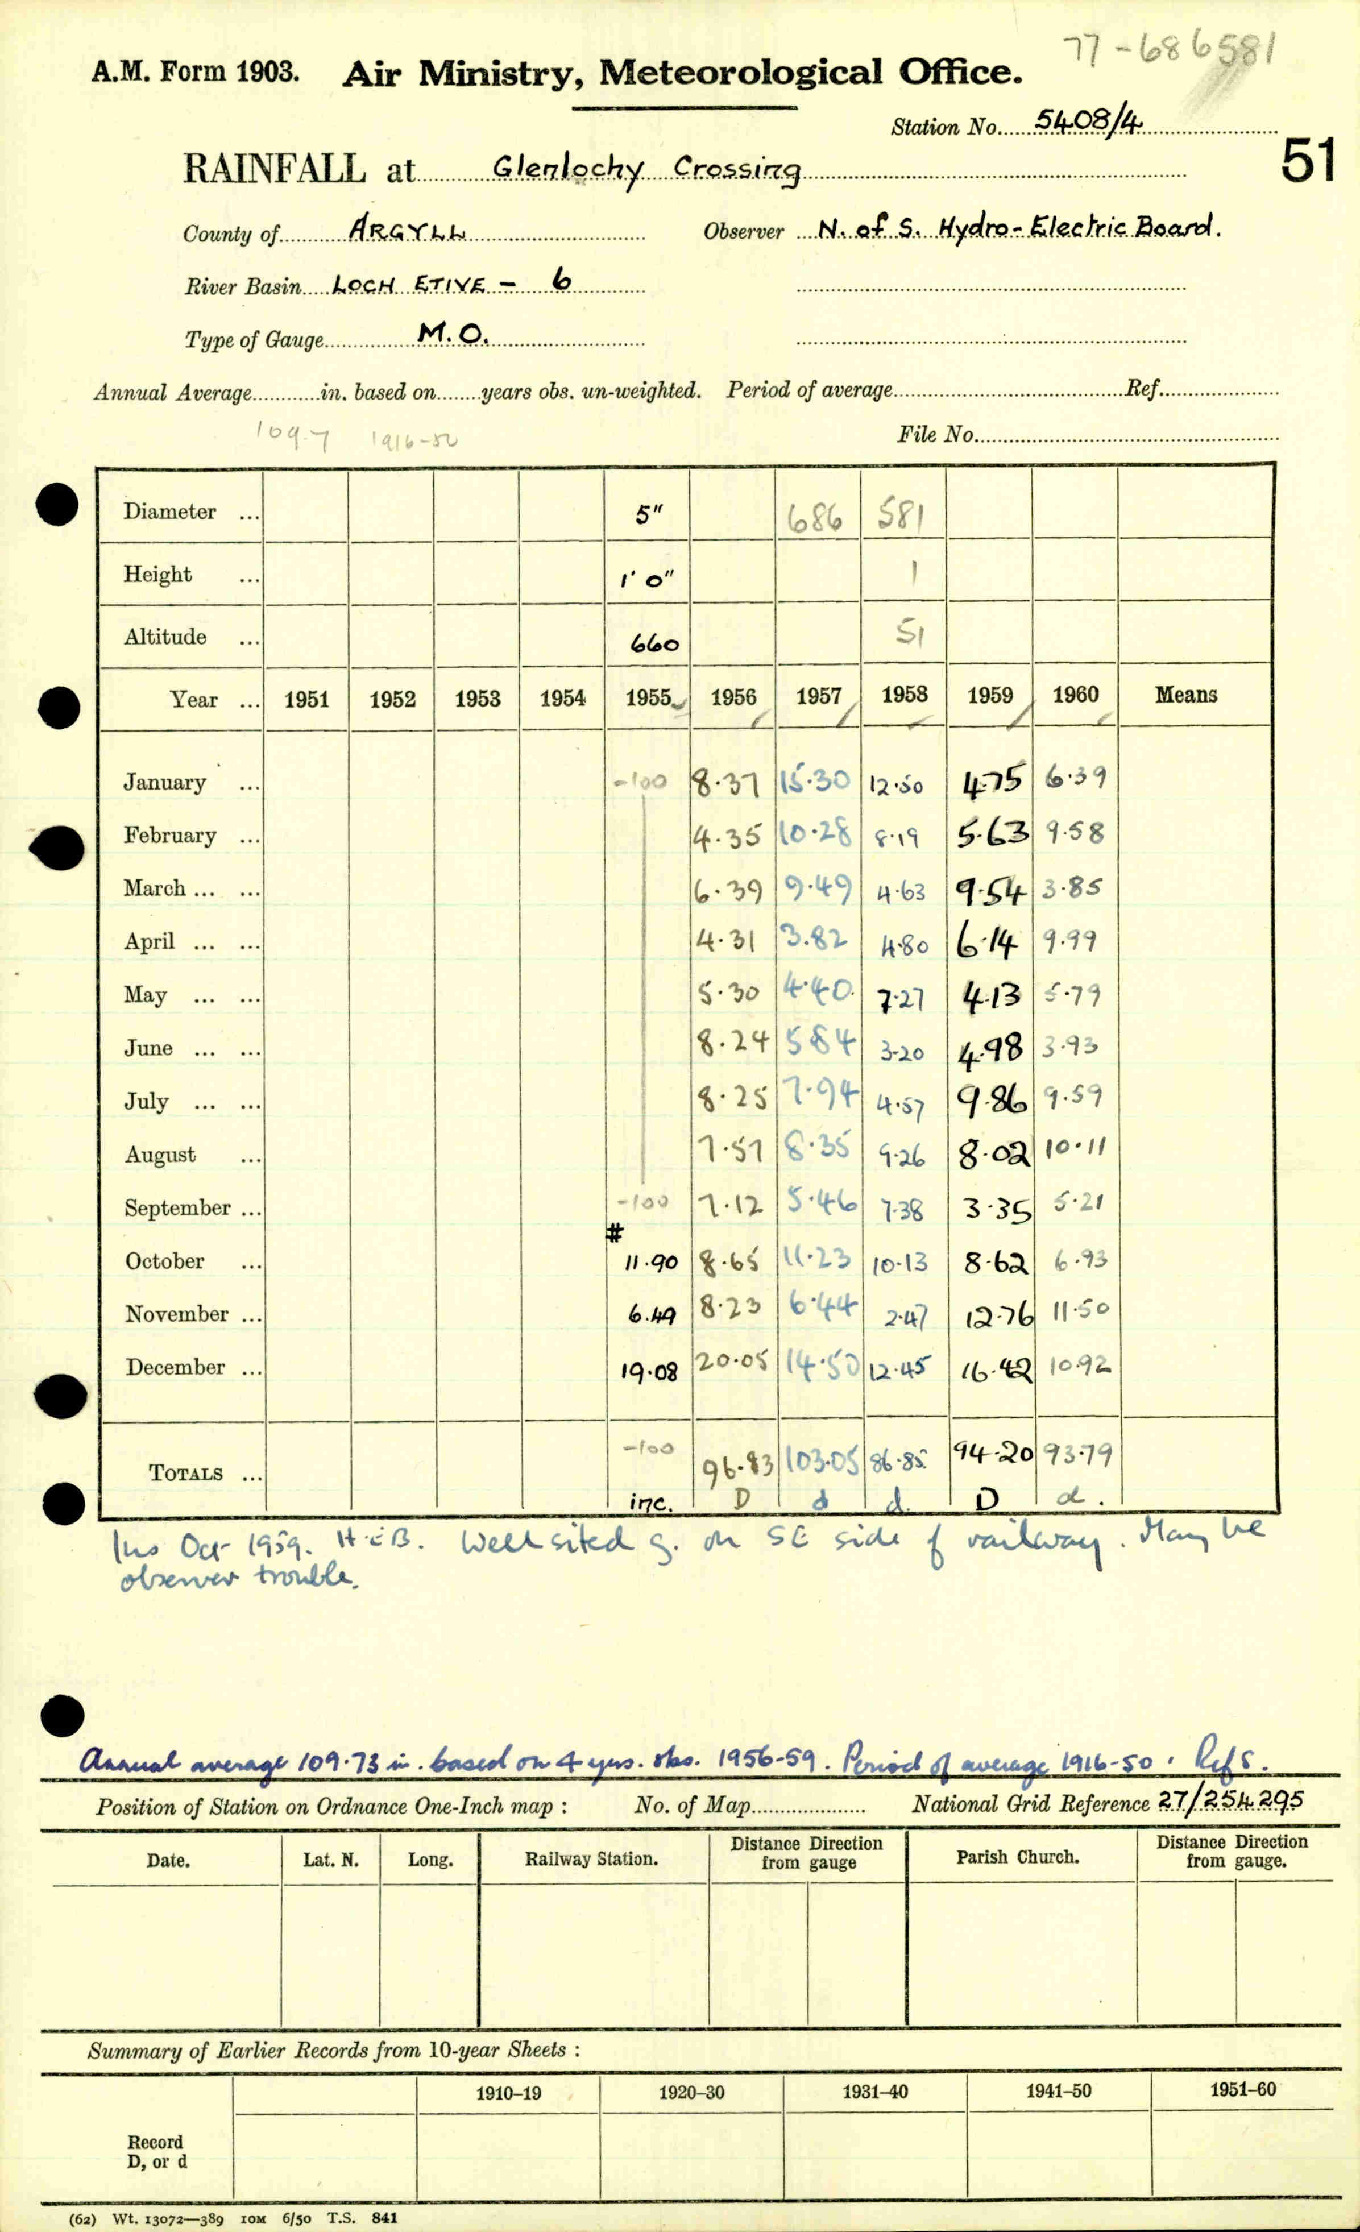 77-686581
A.M. Form 1903. Air Ministry, Meteorological Office.
Station No. 5408/4
51
RAINFALL at Glenlochy Crossing
County of ARGYLL Observer N. of S. Hydro-Electric Board.
River Basin LOCH ETIVE - 6
Type of Gauge M.O.
Annual Average in. based on years obs. un-weighted. Period of average Ref.
109.7 1916-50 File No.
Diameter ... 5" 686 581
Height ... 1' 0" 1
Altitude ... 660 51
Year ... 1951 1952 1953 1954 1955 1956 1957 1958 1959 1960 Means
January ... -100 8.37 15.30 12.50 4.75 6.39
February ... 4.35 10.28 8.19 5.63 9.58
March ... ... 6.39 9.49 4.63 9.54 3.85
April ... ... 4.31 3.82 4.80 6.14 9.99
May ... ... 5.30 4.40 7.27 4.13 5.79
June ... ... 8.24 5.84 3.20 4.98 3.93
July ... ... 8.25 7.94 4.57 9.86 9.59
August ... 7.57 8.35 9.26 8.02 10.11
September ... -100 7.12 5.46 7.38 3.35 5.21
#
October ... 11.90 8.65 11.23 10.13 8.62 6.93
November ... 6.49 8.23 6.44 2.47 12.76 11.50
December ... 19.08 20.05 14.50 12.45 16.42 10.92
TOTALS ... -100 96.83 103.05 86.85 94.20 93.79
inc. D d d. D d.
Ins Oct 1959. H.E.B. Well sited g. on SE side of railway. May be
observer trouble.
Annual average 109.73 in. based on 4 yrs. obs. 1956-59. Period of average 1916-50. Ref S.
Position of Station on Ordnance One-Inch map : No. of Map National Grid Reference 27/254295
Date. Lat. N. Long. Railway Station. Distance Direction from gauge Parish Church. Distance Direction from gauge.
Summary of Earlier Records from 10-year Sheets :
1910–19 1920–30 1931–40 1941–50 1951–60
Record
D, or d
(62) Wt. 13072—389 10M 6/50 T.S. 841